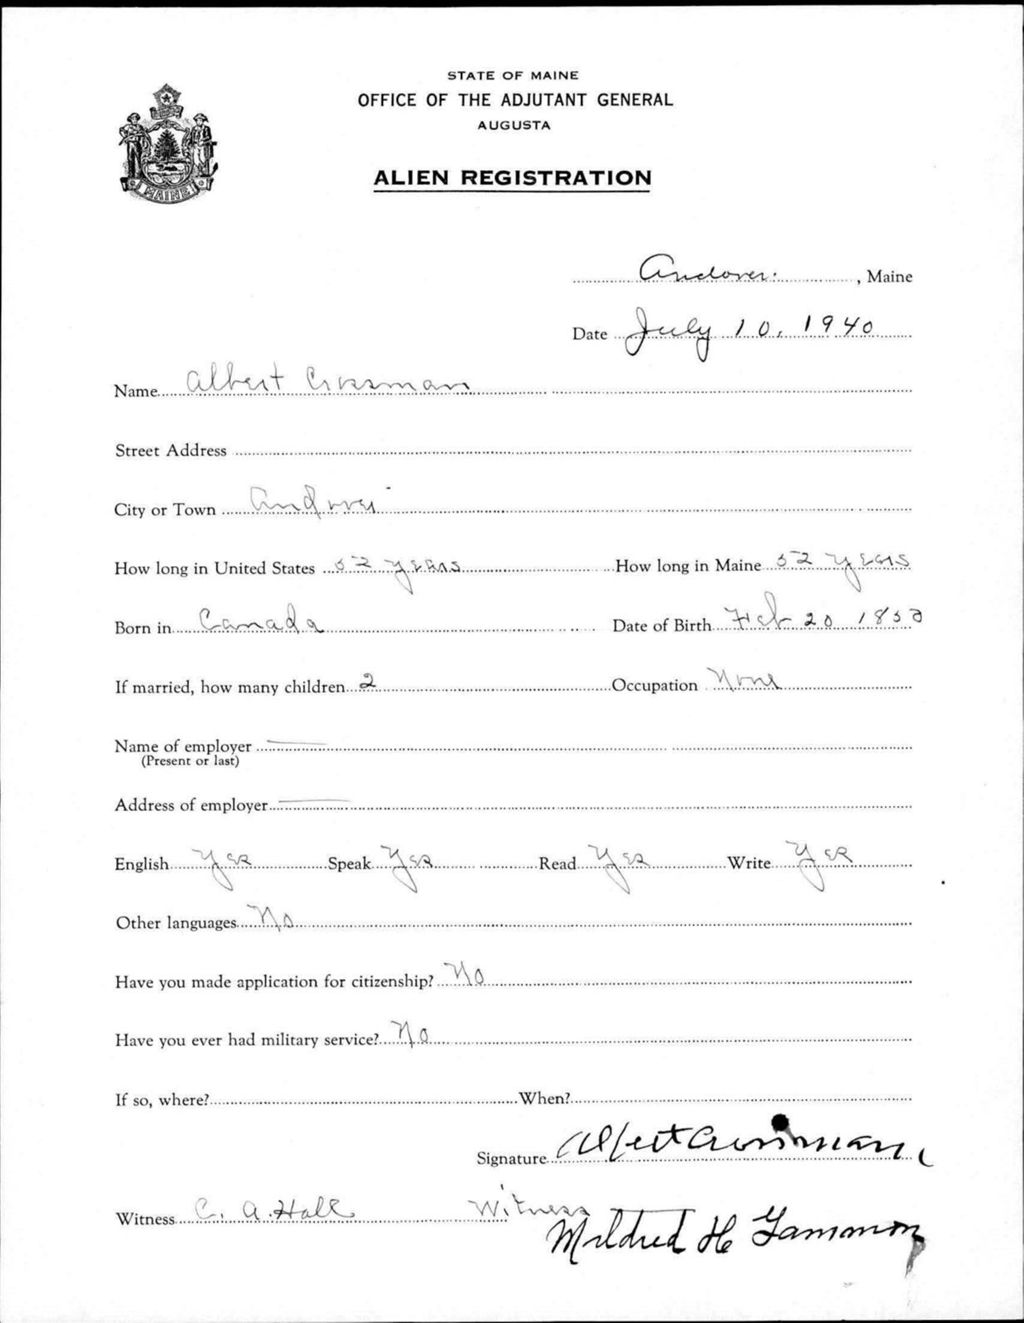 STATE OF MAINE
OFFICE OF THE ADJUTANT GENERAL
AUGUSTA
ALIEN REGISTRATION
MAINE
Andover, Maine
Date July 10, 1940
Name Albert Crossman
Street Address
City or Town Andover
How long in United States 52 years How long in Maine 52 years
Born in Canada Date of Birth Feb 20 1853
If married, how many children 2 Occupation None
Name of employer
(Present or last)
Address of employer
English Yes Speak Yes Read Yes Write Yes
Other languages No
Have you made application for citizenship? No
Have you ever had military service? No
If so, where? When?
Signature Albert Crossman
Witness C. A. Hall Witness
Mildred H Gammon